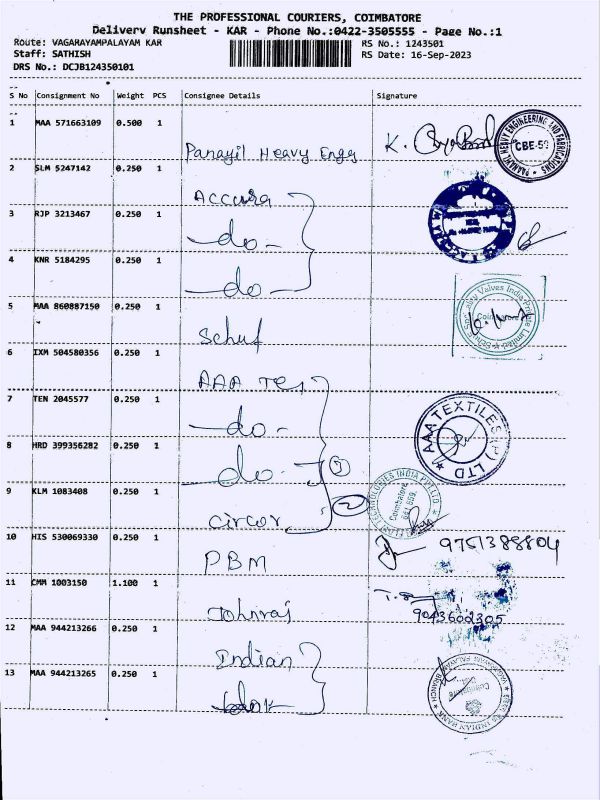 THE PROFESSIONAL COURIERS, COIMBATORE
Delivery Runsheet - KAR - Phone No.:0422-3505555 - Page No.:1
Route: VAGARAYAMPALAYAM KAR RS No.: 1243501
Staff: SATHISH RS Date: 16-Sep-2023
DRS No.: DCJB124350101
S No Consignment No Weight PCS Consignee Details Signature
1 MAA 571663109 0.500 1
Panayil Heavy Engg K.
PANAYIL HEAVY ENGINEERING AND FABRICATIONS CBE-59
2 SLM 5247142 0.250 1
Accura
3 RJP 3213467 0.250 1
-do-
4 KNR 5184295 0.250 1
-do-
5 MAA 860887150 0.250 1
Schuf
Speciality Valves India Private Limited Coimbatore
6 IXM 504580356 0.250 1
AAA Tex
7 TEN 2045577 0.250 1
-do-
AAA TEXTILES (P) LTD
8 HRD 399356282 0.250 1
-do-
9 KLM 1083408 0.250 1
Circor 2
TECHNOLOGIES INDIA PVT LTD Coimbatore 641 659
10 HIS 530069330 0.250 1
PBM 9751388804
11 CMM 1003150 1.100 1
Johnraj 9043602305
12 MAA 944213266 0.250 1
Indian
13 MAA 944213265 0.250 1
bank
INDIAN BANK Coimbatore BRANCH